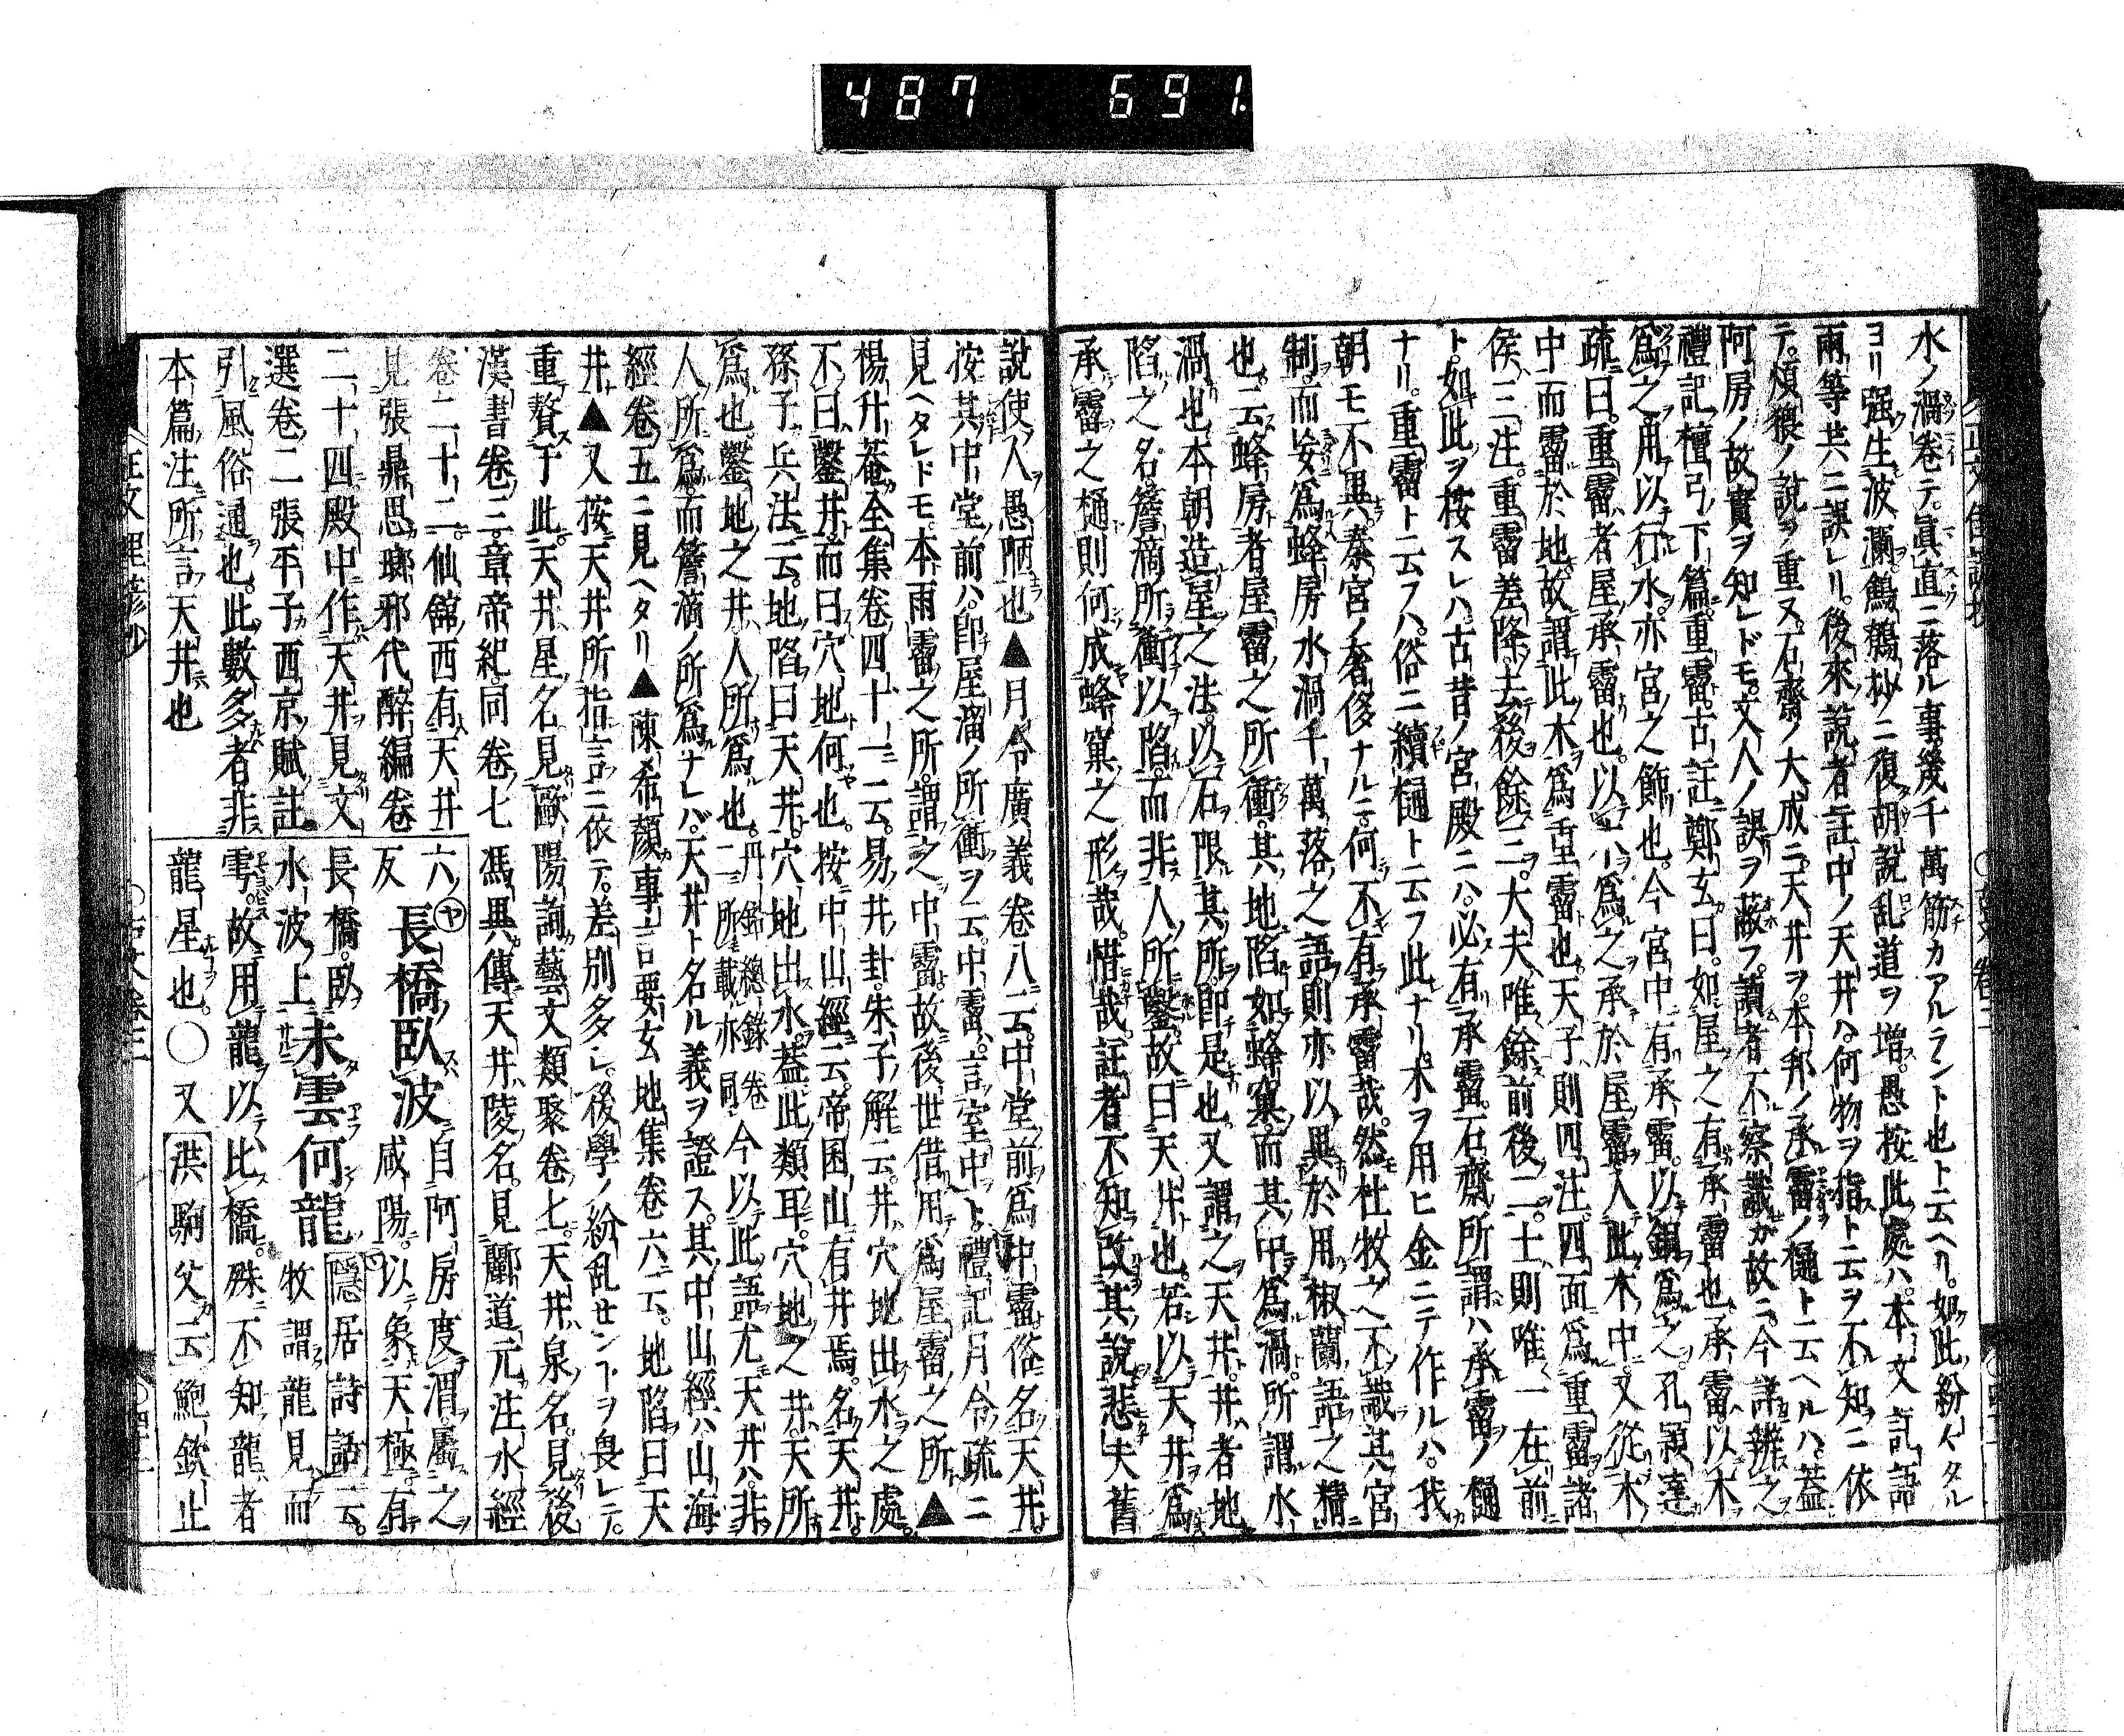 487 691
水ノ渦卷テ眞直ニ落ル事幾千萬筋カアルラント也ト云ヘリ如此紛〻タル
ヨリ强生波瀾鷦鶴抄ニ復胡說乱道ヲ增愚按此處ハ本文註語
兩等共ニ誤レリ後來說者註中ノ天井ハ何物ヲ指ト云ヲ不知ニ依
テ煩猥ノ說ヲ重ヌ石齋ノ大成ニ天井ヲ本邦ノ承霤ノ樋ト云ヘルハ蓋
阿房ノ故實ヲ知レドモ文人ノ誤ヲ蔽フ讀者不察識カ故ニ今詳辨之
禮記檀弓下篇重霤古註鄭玄曰如屋之有承霤也承霤以木
爲之用以行水亦宮之飾也今宮中有承霤以銅爲之孔頴達
疏曰重霤者屋承霤也以木爲之承於屋霤入此木中又從木
中而霤於地故謂此木爲重霤也天子則四注四面爲重霤諸
侯三注重霤差降去後餘三大夫唯餘前後二士則唯一在前
ト如此ヲ按スレハ古昔ノ宮殿ニハ必有承霤石齋所謂ハ承霤ノ樋
ナリ重霤ト云フハ俗ニ續樋ト云フ此ナリ木ヲ用ヒ金ニテ作ルハ我
朝モ不異秦宮ノ奢侈ナルニ何不有承霤哉然杜牧之不識其宮
制而妄爲蜂房水渦千萬落之語則亦以異於用椒蘭語之精
也云蜂房者屋霤之所衝其地陷如蜂窠而其中爲渦所謂水
渦也本朝造屋之法以石限其所卽是也又謂之天井井者地
陷之名簷滴所衝以陷而非人所鑿故曰天井也若以天井爲
承霤之樋則何成蜂窠之形哉惜哉註者不知改其說悲夫舊
說使人愚陋也▲月令廣義卷八云中堂前爲中霤俗名天井
按其中堂前ハ卽屋溜ノ所衝ヲ云中霤ハ言室中ト禮記月令疏ニ
見ヘタレドモ本雨霤之所謂之中霤故後世借用爲屋霤之所▲
楊升菴全集卷四十一ニ云易井卦朱子解云井穴地出水之處
不曰鑿井而曰穴地何也按中山經云帝囷山有井焉名天井
孫子兵法云地陷曰天井穴地出水蓋此類耳穴地之井天所
爲也鑿地之井人所爲也丹鉛總錄卷二所載亦同今以此語尤天井ハ非
人所爲而簷滴ノ所爲ナレバ天井ト名ル義ヲ證ス其中山經ハ山海
經卷五ニ見ヘタリ▲陳希顔事言要玄地集卷六云地陷曰天
井▲又按天井所指言ニ依テ差別多シ後學ノ紛乱センヿヲ畏レテ
重贅于此天井星名見歐陽詢藝文類聚卷七天井泉名見後
漢書卷三章帝紀同卷七馮異傳天井陵名見酈道元注水經
卷二十二仙舘西有天井
見張鼎思瑯邪代醉編卷
二十四殿中作天井見文
選卷二張平子西京賦註
引風俗通也此數多者非
本篇注所言天井也
六反 長橋臥波 自阿房度渭屬之咸陽以象天極有
長橋臥水波上 未雲何龍 隱居詩話云牧謂龍見而
雩故用龍以比橋殊不知龍者
龍星也○又洪駒父云鮑欽止